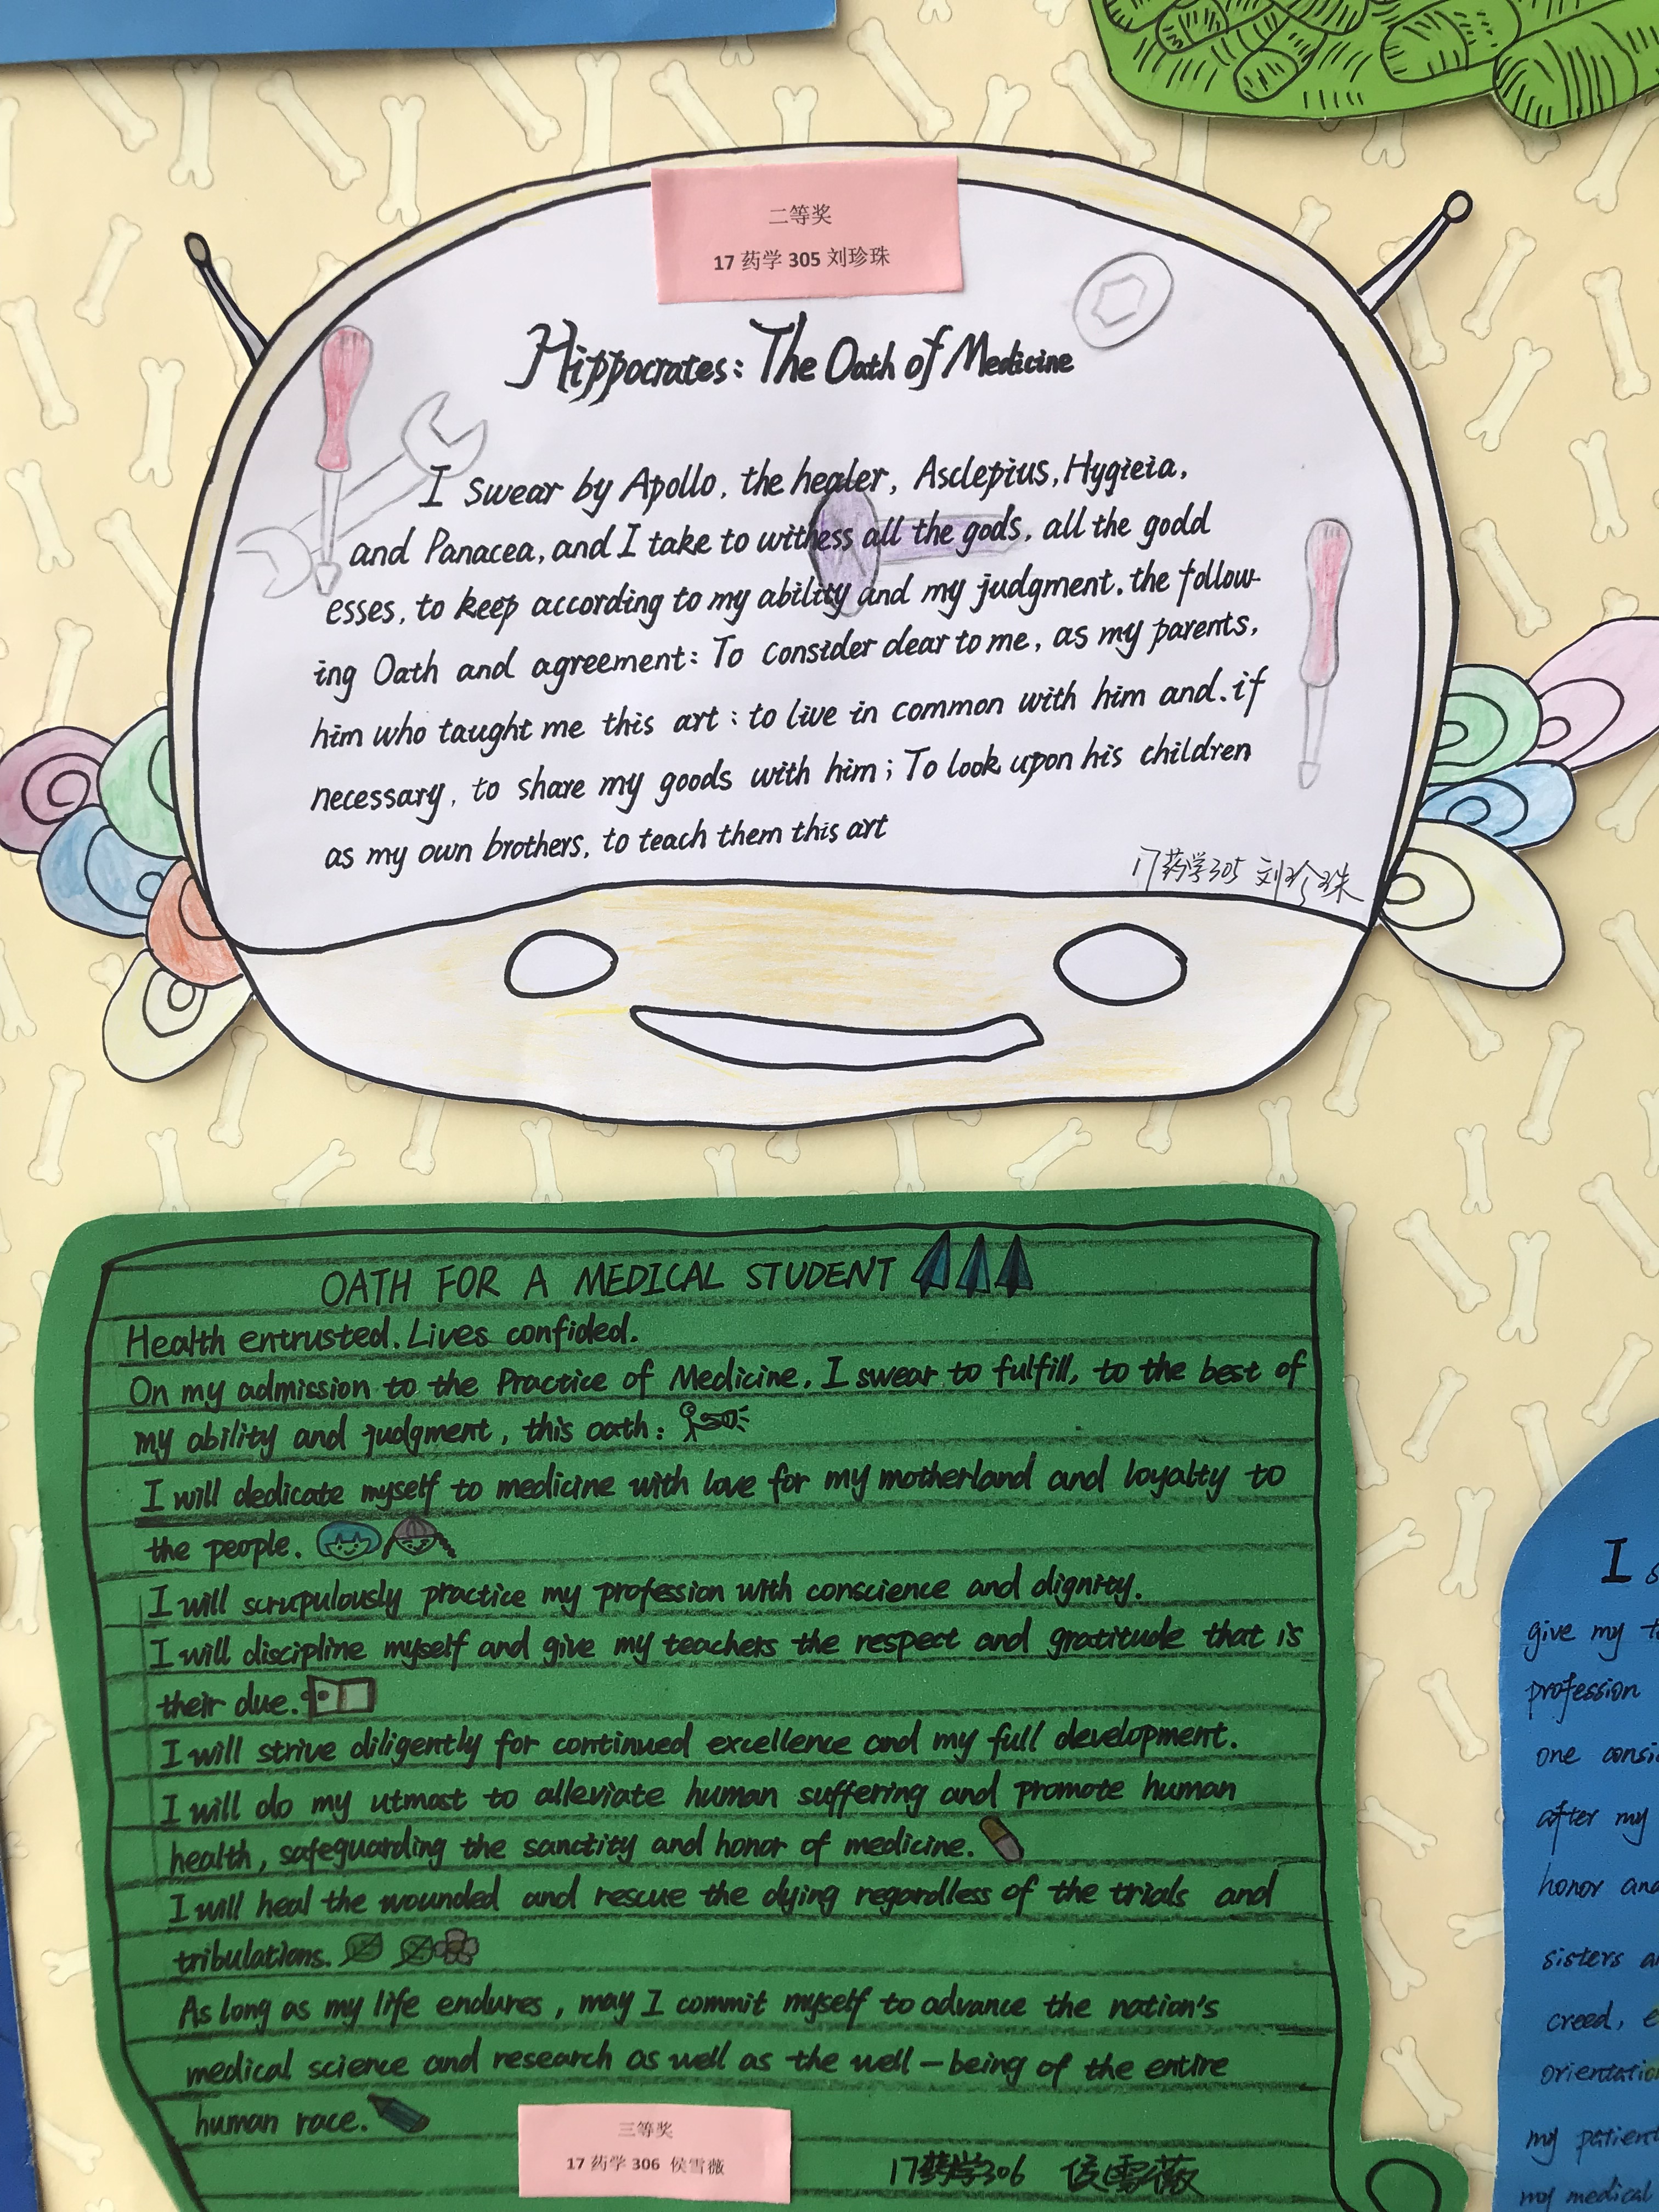 二等奖
17 药学 305 刘珍珠
Hippocrates: The Oath of Medicine
I swear by Apollo, the healer, Asclepius, Hygieia,
and Panacea, and I take to witness all the gods, all the godd
esses, to keep according to my ability and my judgment. the follow-
ing Oath and agreement: To consider dear to me, as my parents,
him who taught me this art: to live in common with him and. if
necessary, to share my goods with him; To look upon his children
as my own brothers, to teach them this art
17药学305 刘珍珠
OATH FOR A MEDICAL STUDENT
Health entrusted. Lives confided.
On my admission to the Practice of Medicine, I swear to fulfill, to the best of
my ability and judgment, this oath:
I will dedicate myself to medicine with love for my motherland and loyalty to
the people.
I will scrupulously practice my profession with conscience and dignity.
I will discipline myself and give my teachers the respect and gratitude that is
their due.
I will strive diligently for continued excellence and my full development.
I will do my utmost to alleviate human suffering and promote human
health, safeguarding the sanctity and honor of medicine.
I will heal the wounded and rescue the dying regardless of the trials and
tribulations.
As long as my life endures, may I commit myself to advance the nation's
medical science and research as well as the well-being of the entire
human race.
三等奖
17 药学 306 侯雪薇
17药学306 侯雪薇
I
give my
profession
one
after my
honor
sisters
creed,
my
my medical